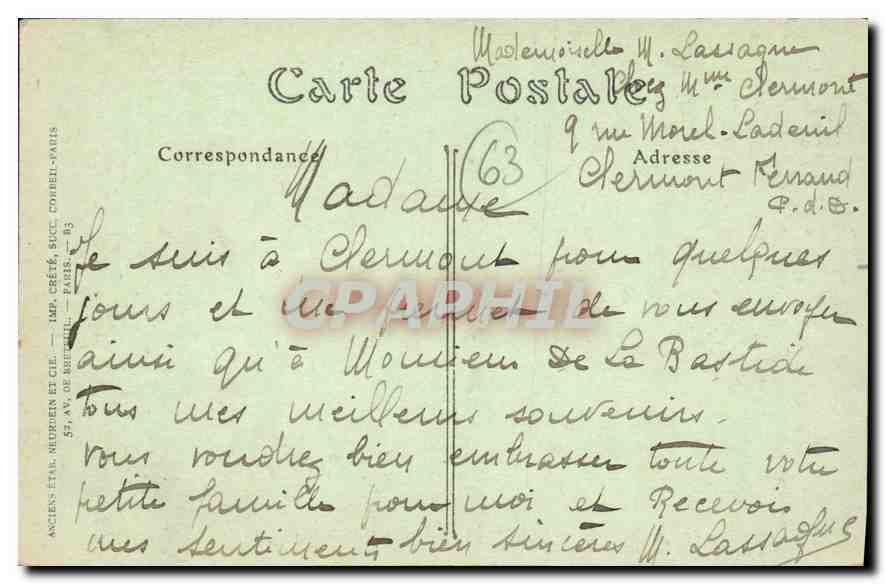 Mademoiselle M. Lassagne
Chez Mme Clermont
9 rue Morel-Ladeuil
Clermont Ferrand
P.d.D.
Carte Postale
Correspondance
Adresse
63
Madame
Je suis à Clermont pour quelques
jours et me permet de vous envoyer
ainsi qu'à Monsieur De La Bastide
tous mes meilleurs souvenirs.
vous voudrez bien embrasser toute votre
petite famille pour moi et Recevoir
mes sentiments bien sincères M. Lassagne
ANCIENS ÉTAB. NEURDEIN ET CIE. — IMP. CRÉTÉ, SUCC. CORBEIL-PARIS
52, AV. DE BRETEUIL. — PARIS. — B3
CPAPHIL